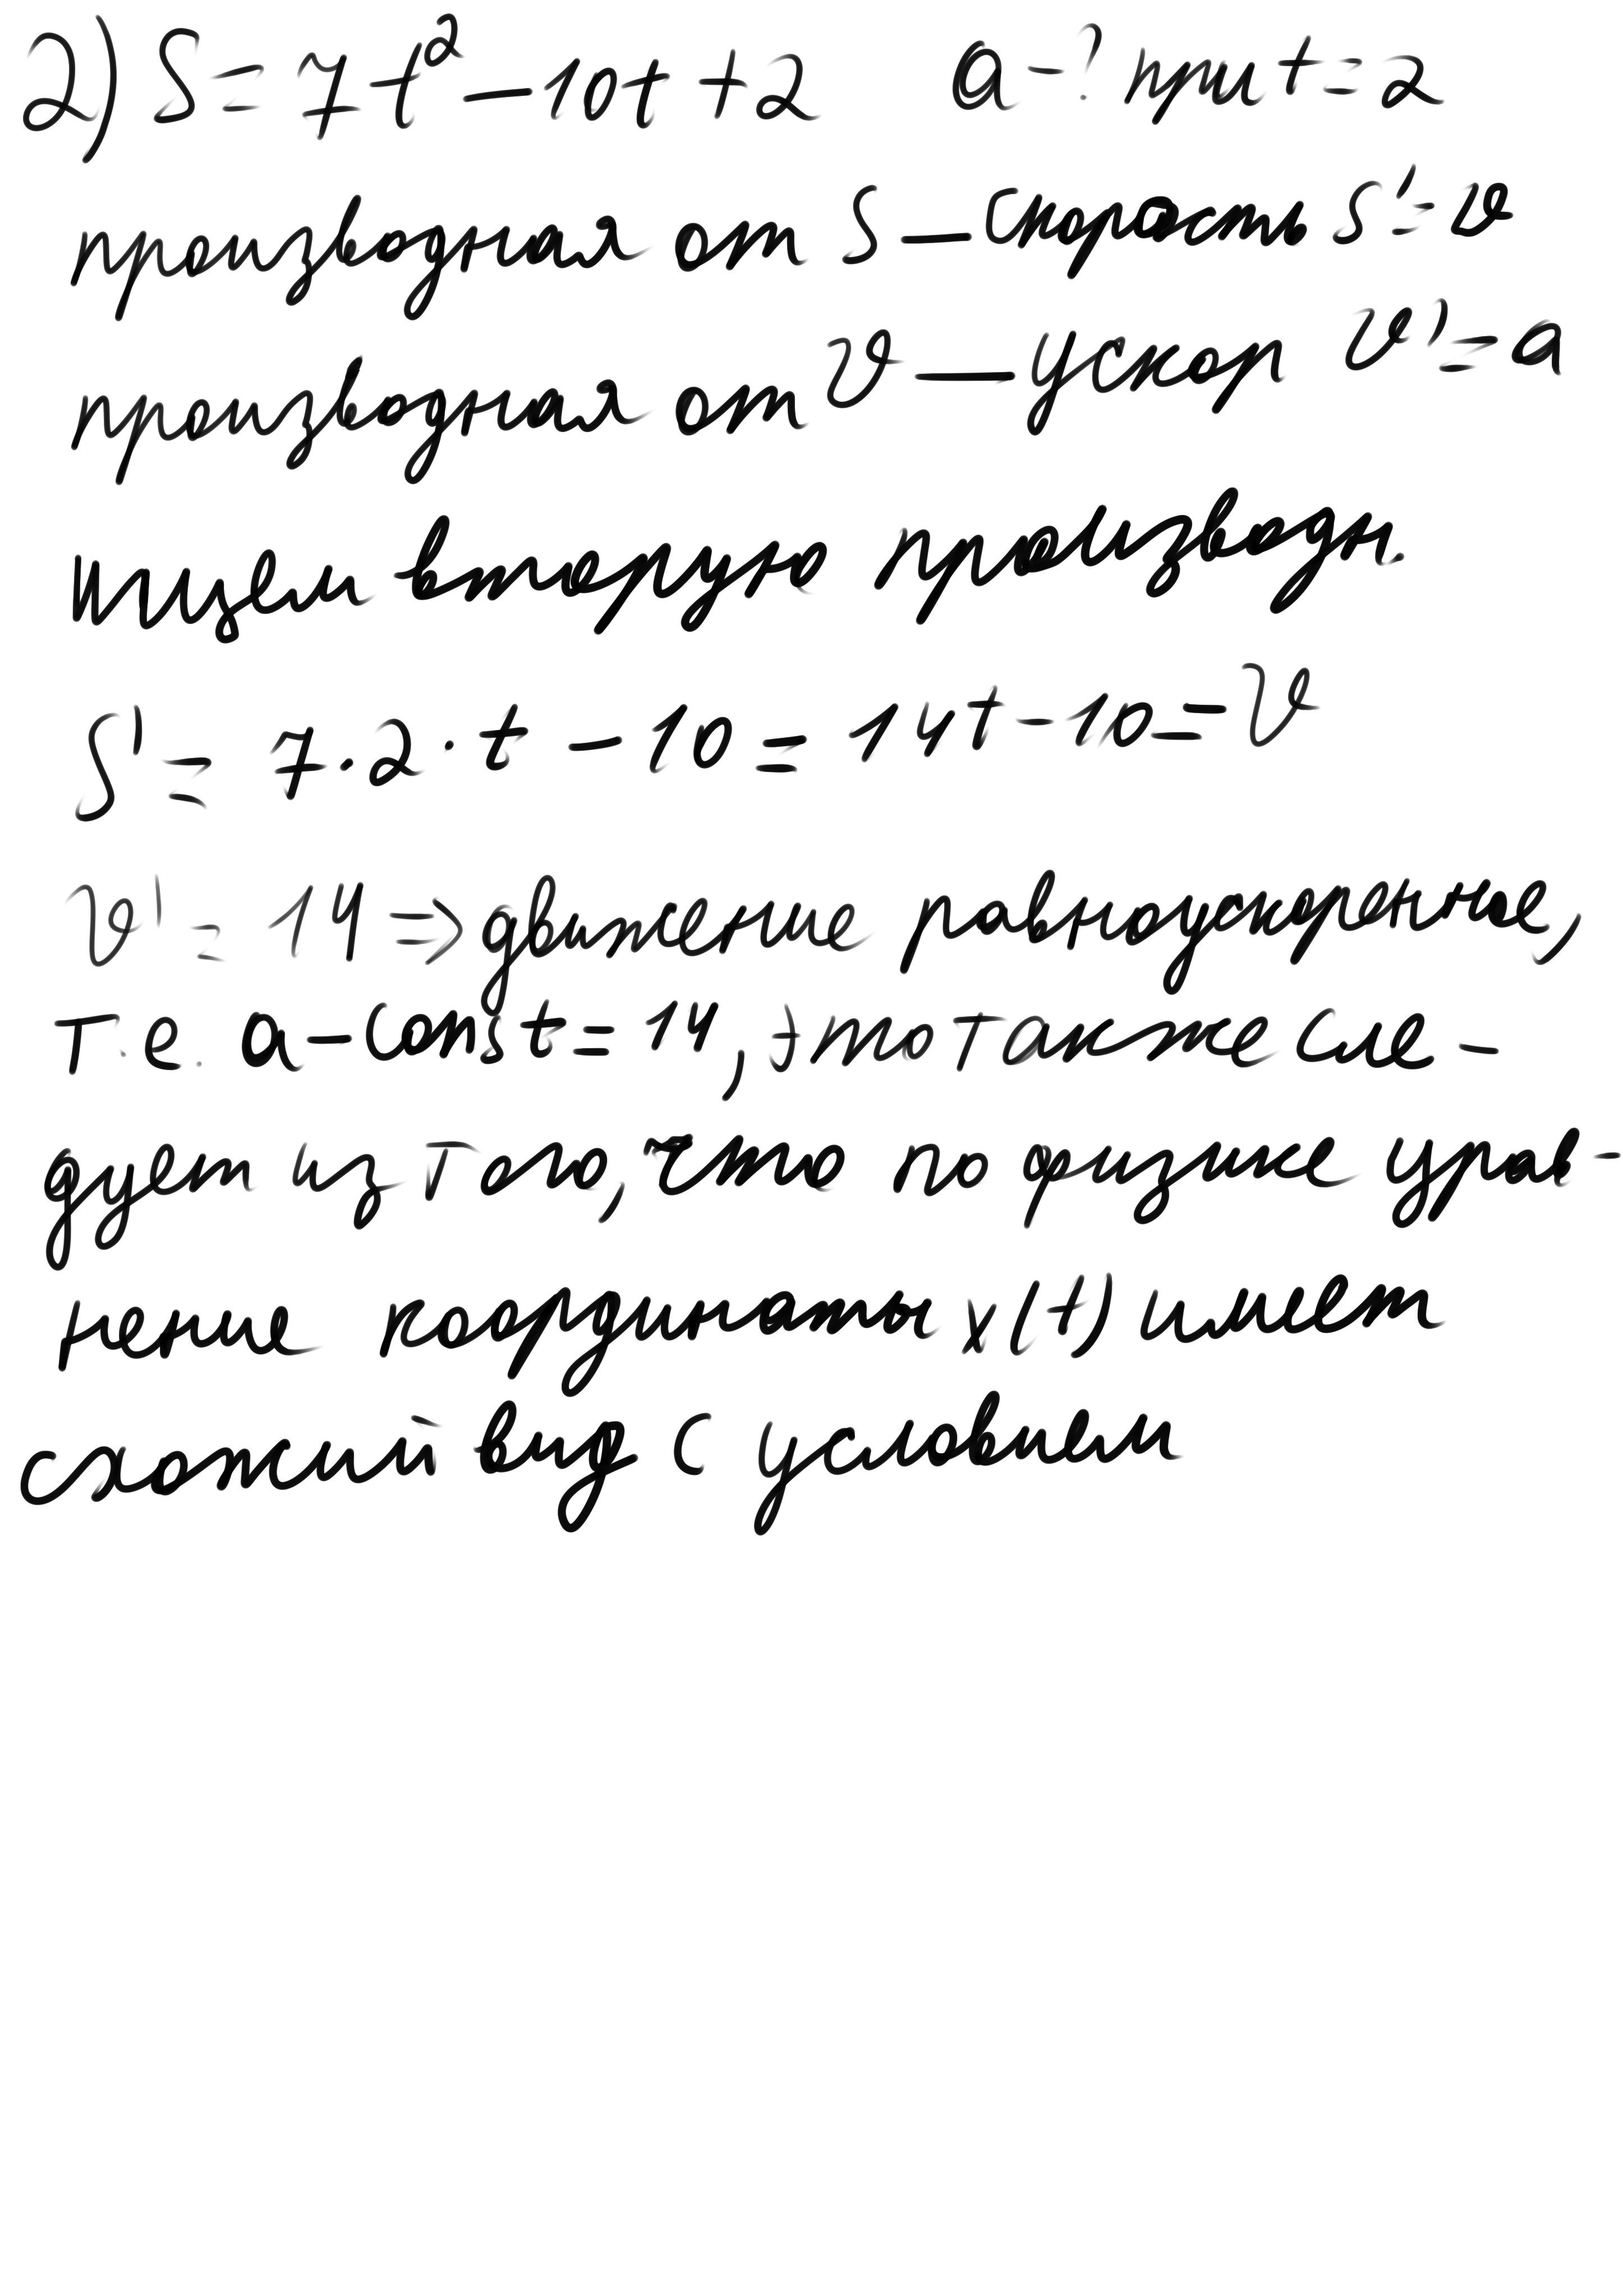 2) S = 7t² - 10t + 2 a - ? при t = 2
производная от S — скорость S' = v
производная от v — ускор v' = a
ищем вторую производн.
S' = 7·2·t - 10 = 14t - 10 = v
v' = 14 => движение равноускоренное,
т.е. a - const = 14, это также сле-
дует из того, что по физике урав-
нение координаты x(t) имеет
схожий вид с условием